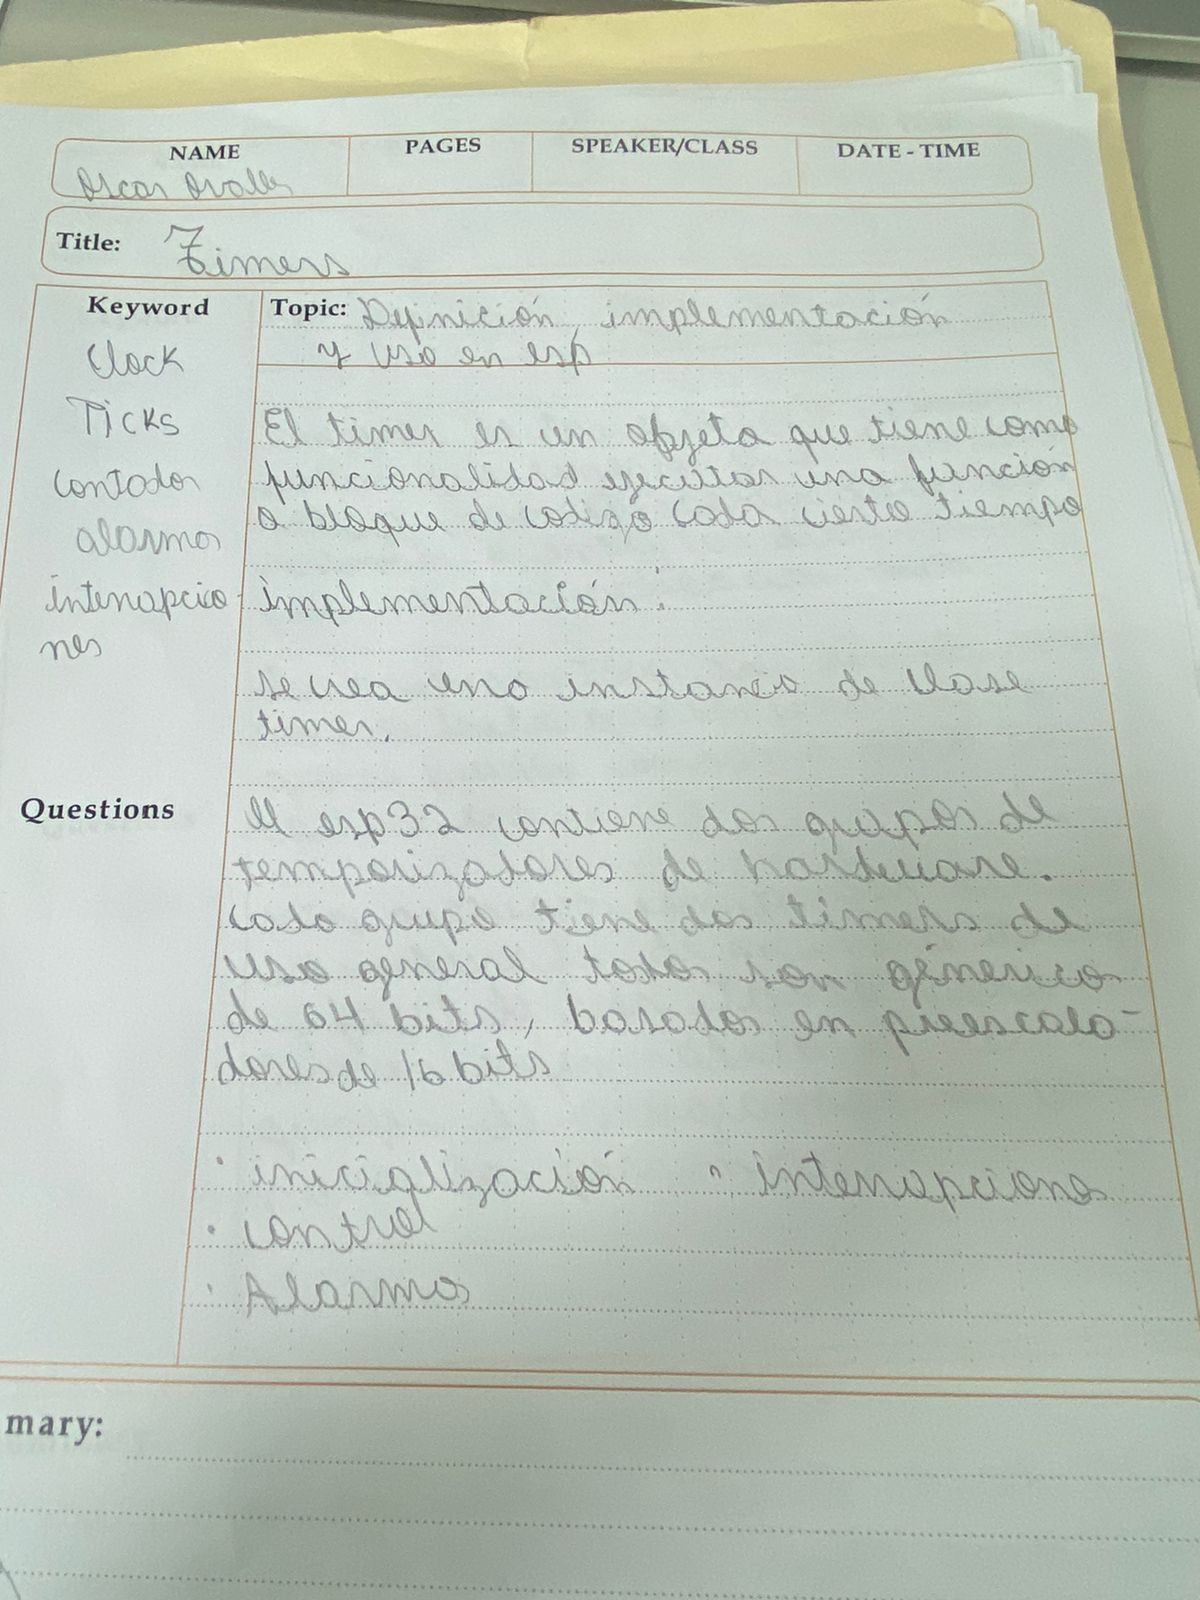 NAME PAGES SPEAKER/CLASS DATE - TIME
Oscar Ovalles
Title: Timers
Keyword
Clock
Ticks
contador
alarma
interrupcio
nes
Topic: Definición, implementación
y uso en esp
El timer es un objeto que tiene como
funcionalidad ejecutar una función
o bloque de codigo cada cierto tiempo
implementación:
se crea una instancia de clase
timer.
Questions
El esp32 contiene dos grupos de
temporizadores de hardware.
cada grupo tiene dos timers de
uso general todos son génerico
de 64 bits, basados en preescala-
dores de 16 bits
· inicialización · interrupciones
· control
· Alarmas
mary: